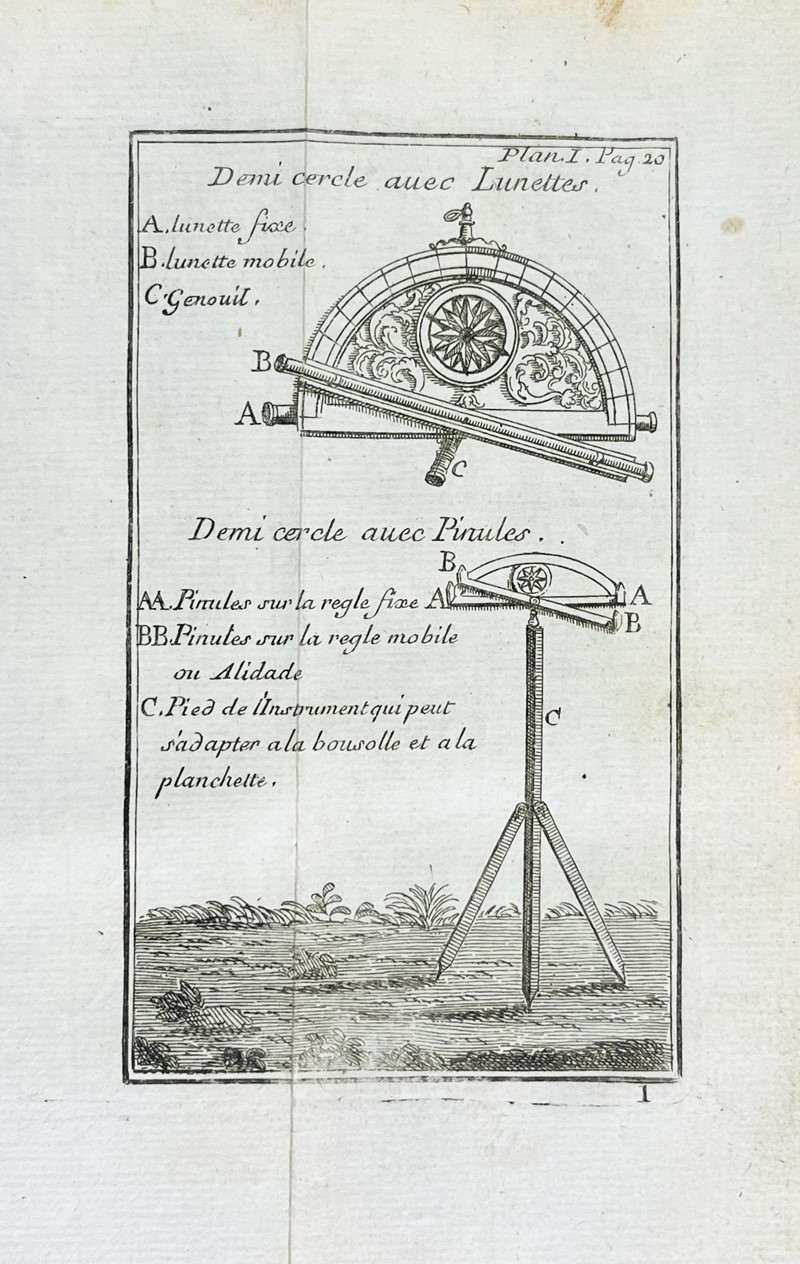 Plan. I. Pag. 20
Demi cercle auec Lunettes.
A. lunette fixe.
B. lunette mobile.
C. Genouil.
B
A
C
Demi cercle auec Pinules.
B
AA. Pinules sur la regle fixe A A
BB. Pinules sur la regle mobile B
ou Alidade
C. Pied de l'Instrument qui peut C
s'adapter a la bousolle et a la
planchette.
1